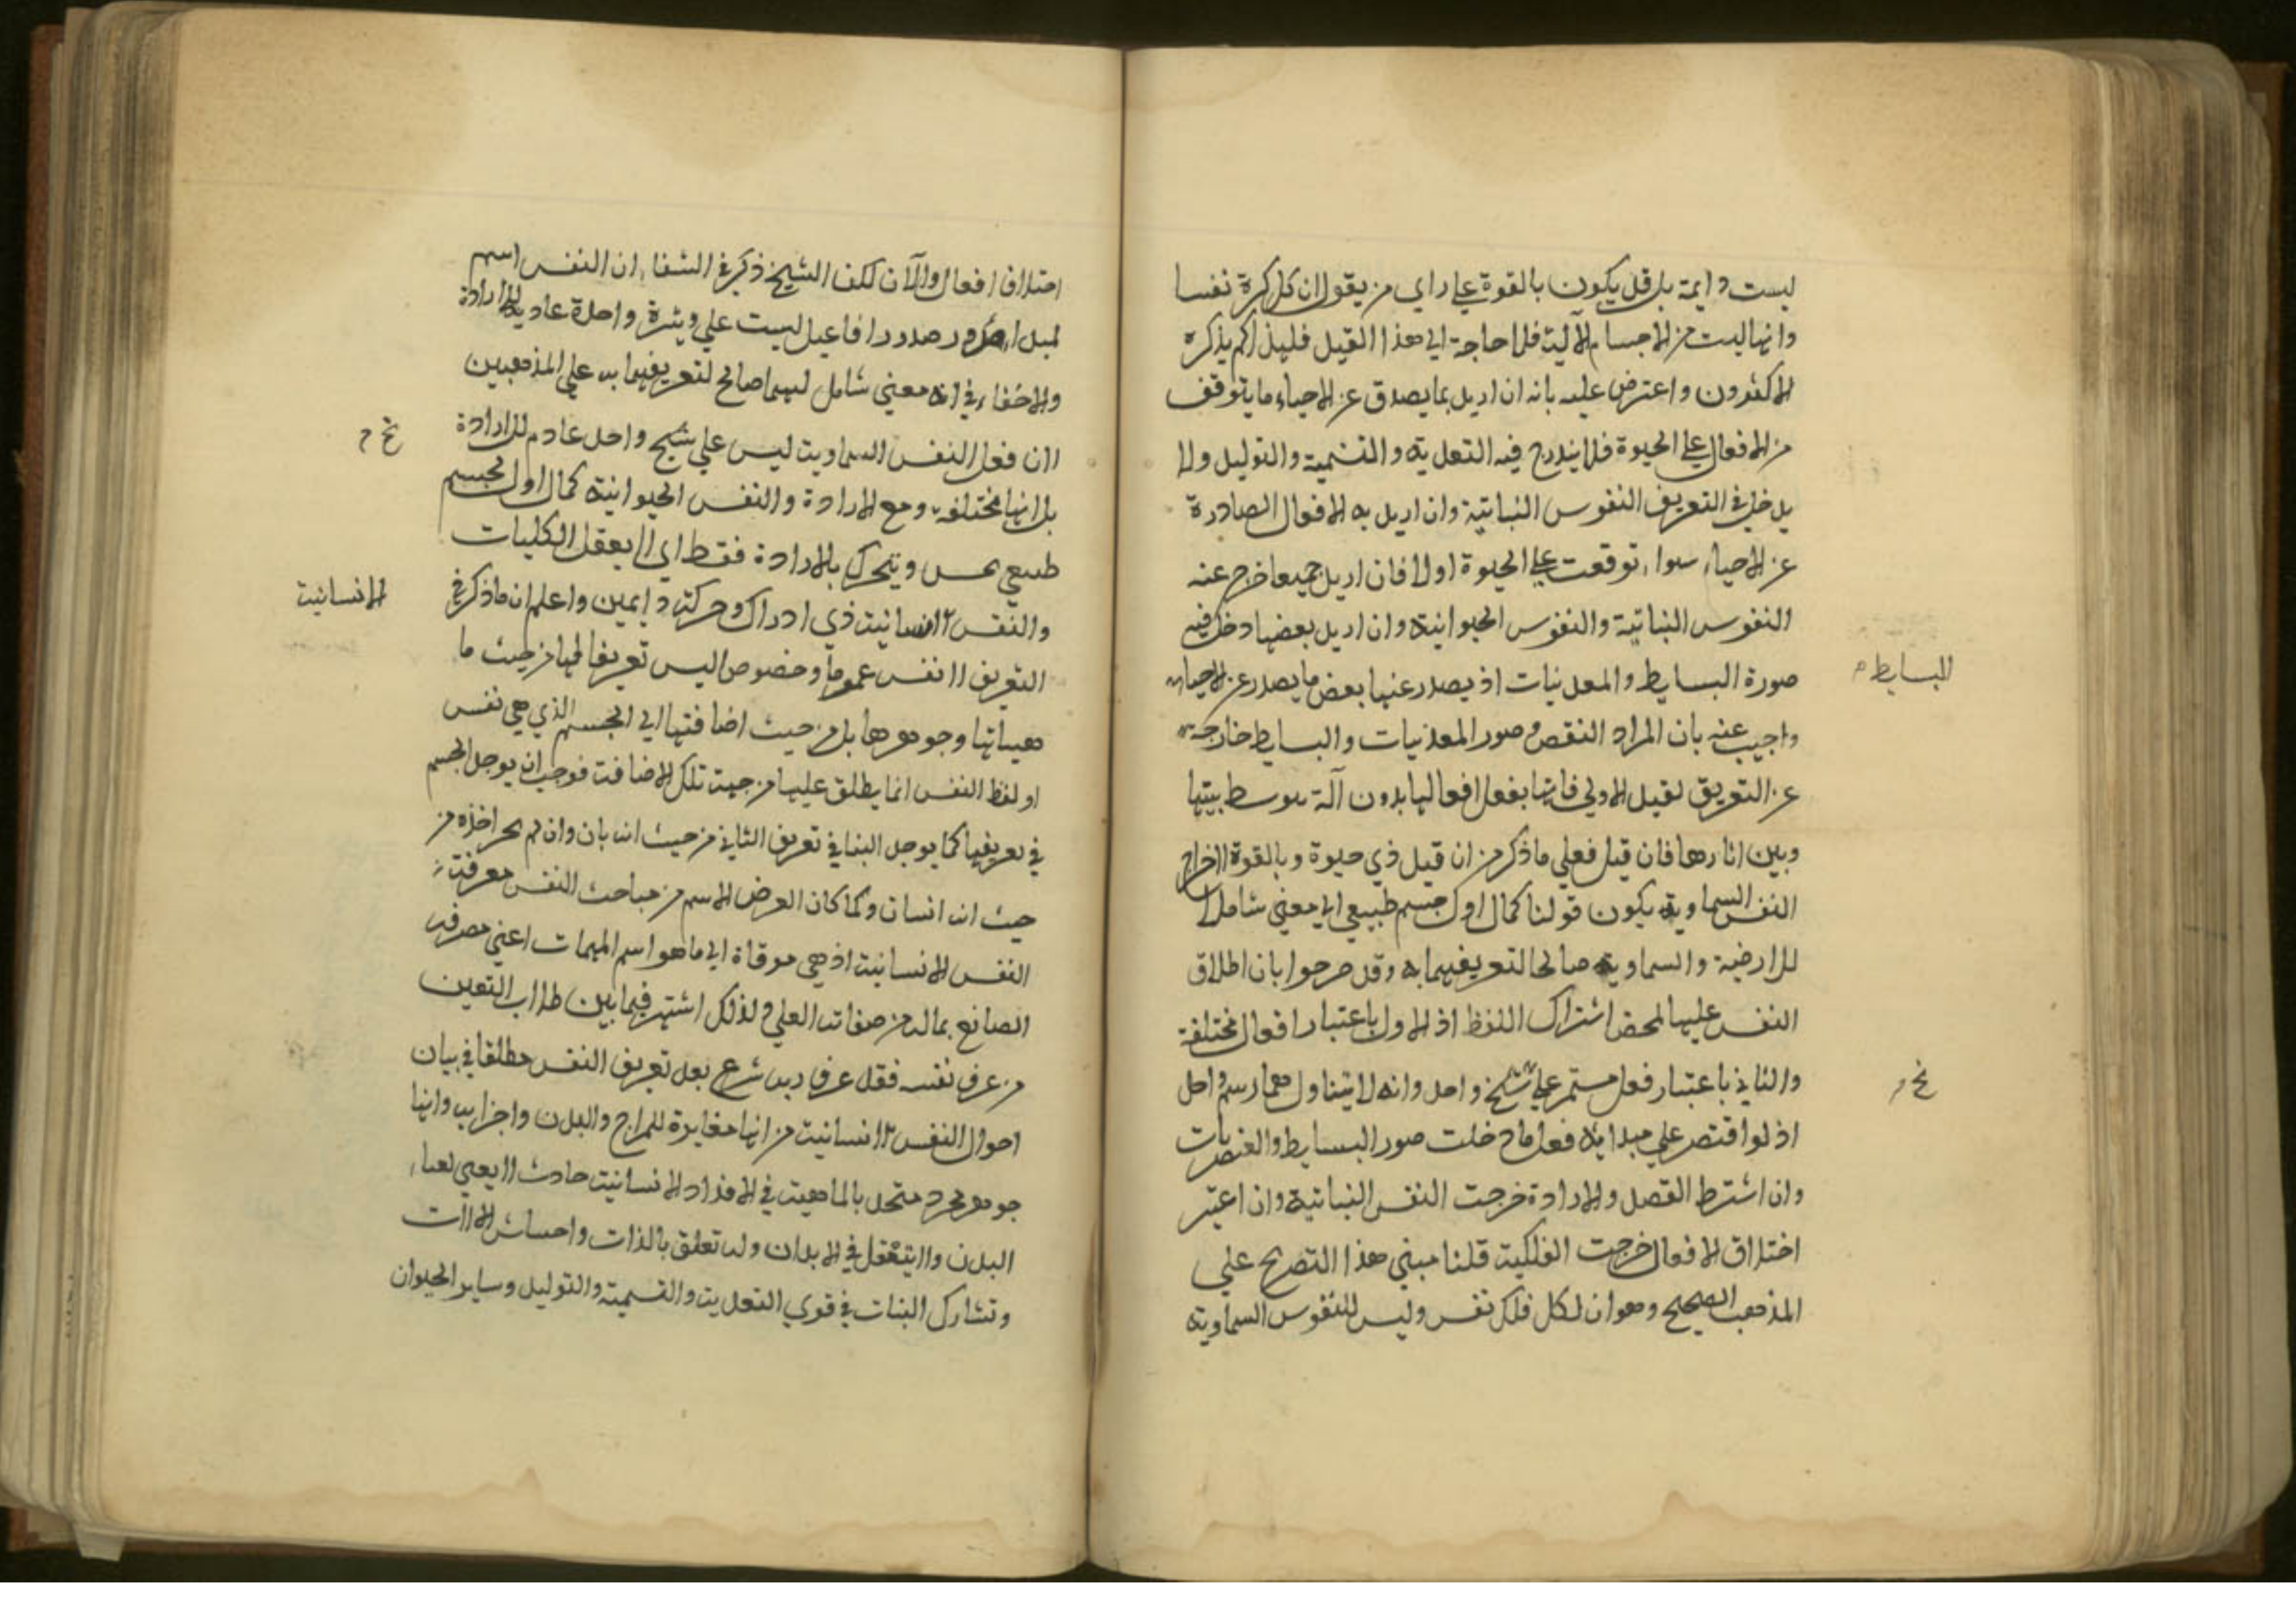 ليست دايمة بل قد يكون بالقوة علي راي من يقول ان كل كرة نفسا
وانها ليست من الاجسام الآلية فلا حاجة الي هذا القيد فليذا لم يذكره
الاكثرون واعترض عليه بانه ان اريد بما يصدق عن الاحياء ما يتوقف
من الافعال علي الحيوة فلا يندرج فيه التعدية والتنمية والتوليد ولا
يدخل في التعريف النفوس النباتية وان اريد به الافعال الصادرة
عن الاحياء سواء توقعت علي الحيوة اولا فان اريد جميعا خرج عنه
النفوس النباتية والنفوس الحيوانية وان اريد بعضها دخل فيه
صورة البسايط والمعدنيات اذ يصدر عنها بعض ما يصدر عن الاحياء
البسايط م
واجيب عنه بان المراد النقص وصور المعدنيات والبسايط خارجة
عن التعريق لقيد الاولي فانها بفعل افعالها بدون آلة موسط بيتها
وبين اثارها فان قيل فعلي ما ذكر من ان قيد ذي حيوة وبالقوة لاخراج
النفس السماوية يكون قولنا كمال اول جسم طبيعي الي معني شاملا
للارضية والسماوية صالحا لتعريفهما به وقد صرحوا بان اطلاق
النفس عليها لمحض اشتراك اللفظ اذ الاول باعتبار افعال مختلفة
والثاني باعتبار فعل مستمر علي شيخ واحد وانه لا يتناولهما رسم واحد
نخ م
اذ لو اقتصر علي مبداية فعل ما دخلت صور البسايط والعنصريات
وان اشترط القصد والارادة خرجت النفس النباتية وان اعتبر
اختلاق الافعال خرجت الفلكية قلنا مبني هذا التصريح علي
المذهب الصحيح وهو ان لكل فلك نفس وليس للنفوس السماوية
اختلاف افعال والآن لكن الشيخ ذكر في الشفاء ان النفس اسم
لمبداء صدور افاعيل ليست علي وثيرة واحدة عادية للارادة
والاخفاء في انه معني شامل لهما صالح لتعريفهما به علي المذهبين
لان فعل النفس السماوية ليس علي شيخ واحد عادم للارادة
نخ م
بل انها مختلفة ومع الارادة والنفس الحيوانية كمال اول لجسم
طبيعي يحس ويتحرك بالارادة فقط اي لا يعقل الكليات
والنفس الانسانية ذي ادراك وحركة دايمين واعلم ان ما ذكر في
الانسانية
التعريف لانفس عموما وخصوصا ليس تعريفا لها من حيث ما
هيياتها وجوهرها بل من حيث اضافتها الي الجسم الذي هي نفس
او لفظ النفس انما يطلق عليها من جهة تلك الاضافة فوجب ان يوجد الجسم
في تعريفها كما يوجد البنا في تعريف الثاني من حيث انه بان وان لم يجز اخذه من
حيث انه انسان وكما كان العرض الاسم من مباحث النفس معرفة
النفس الانسانية اذ هي مرقاة الي ما هو اسم المهمات اعني معرفة
الصانع بماله من صفات العلي ولذلك اشتهر فيما بين طلاب التعين
من عرف نفسه فقد عرف ربه شرع بعد تعريف النفس مطلقا في بيان
احوال النفس الانسانية من انها مغايرة للمزاج والبدن واجزايه وانها
جوهر مجرد متحد بالماهية في الافراد الانسانية حادث لا يعني لعناء
البدن ولا يتنقل في الابدان وله تعلق بالذات واحساس الالات
وتشارك البنات في قوي التعدية والتسمية والتوليد وساير الحيوان